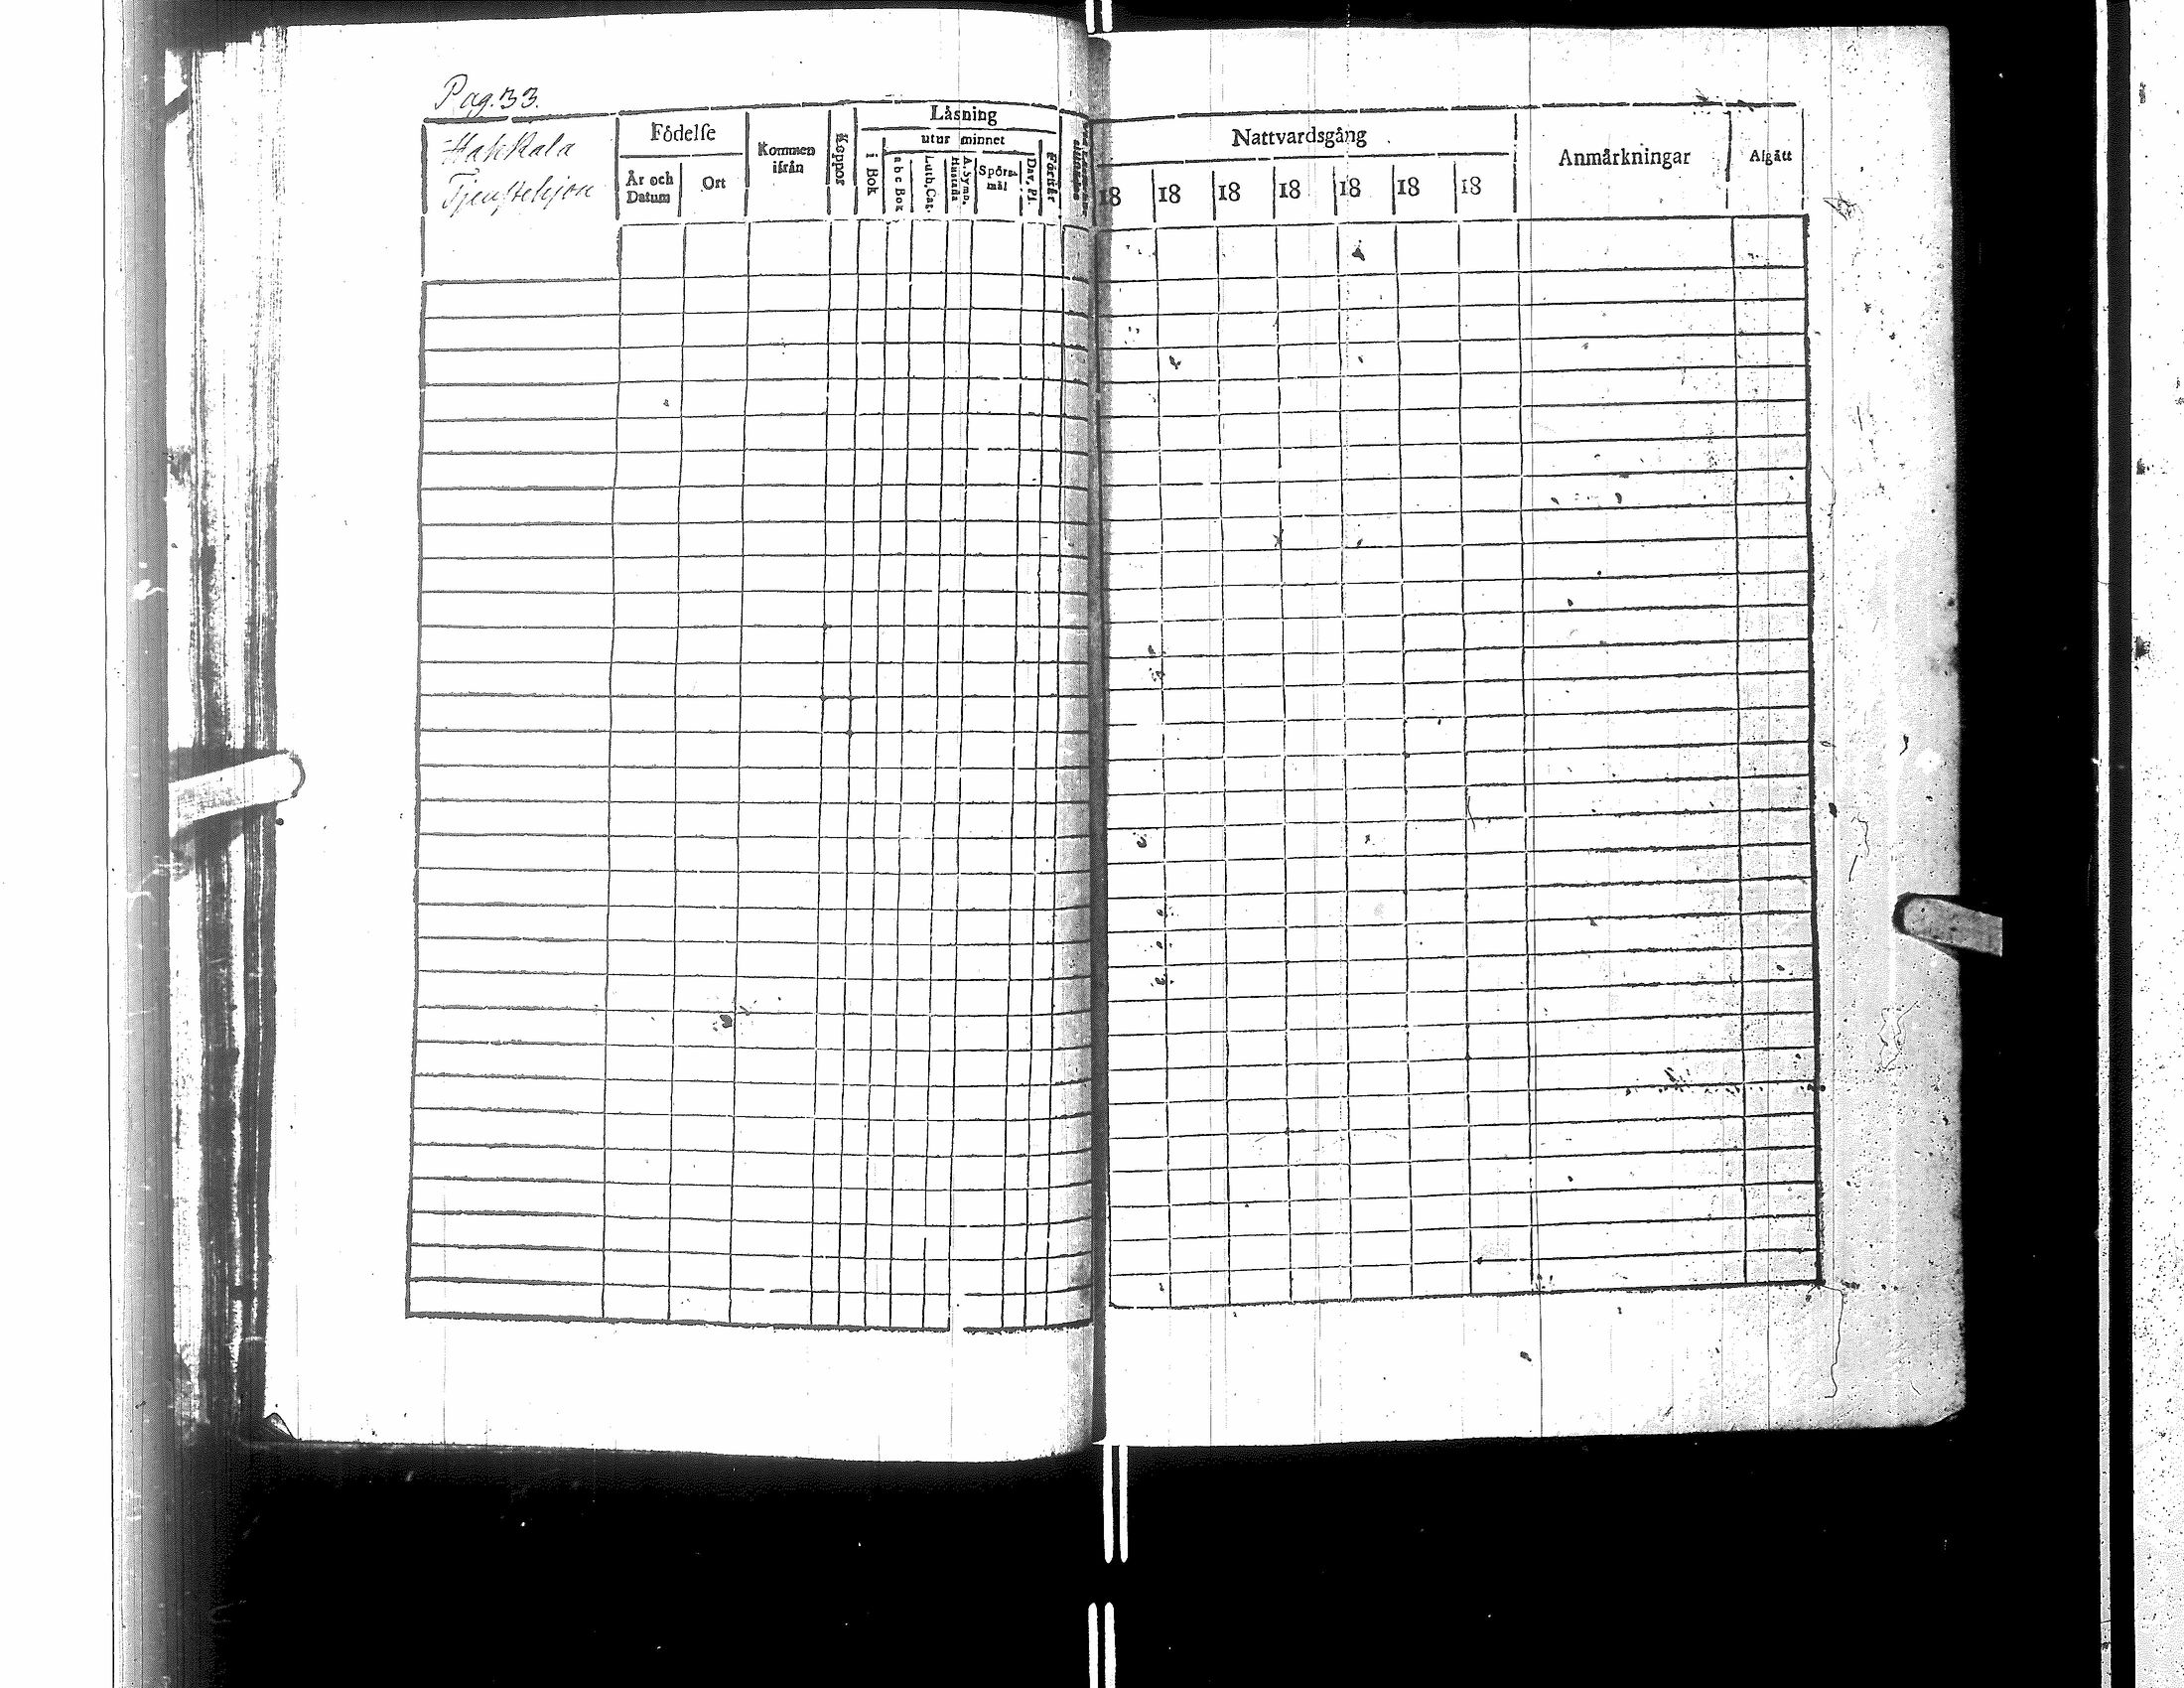 Pag. 33.
Hakkala
Tjenstehjon
Födelse
År och Datum
Ort
Kommen ifrån
Koppor
Läsning
i Bok
utur minnet
a b c Bok
Luth. Cat.
A. Symb.
Spörsmål
Dav. Ps.
Förstår
Nattvardsgång
18 18 18 18 18 18 18
Anmärkningar
Afgått